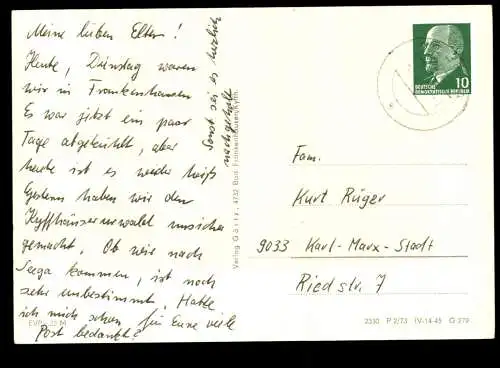 Meine lieben Eltern!
Heute, Dienstag waren
wir in Frankenhausen
Es war jetzt ein paar
Tage abgekühlt, aber
heute ist es wieder heiß
Gestern haben wir den
Kyffhäuserwald unsicher
gemacht. Ob wir nach
Seega kommen, ist noch
sehr unbestimmt. Hatte
ich mich schon für Eure viele
Post bedankt?
Sonst sei es herzlich
nachgeholt
EVP 25 M
Verlag Gäitz, 4732 Bad Frankenhausen/Kyffh.
10
DEUTSCHE
DEMOKRATISCHE REPUBLIK
Fam.
Kurt Rüger
9033 Karl-Marx-Stadt
Riedstr. 7
2330 P 2/73 IV-14-45 G 279